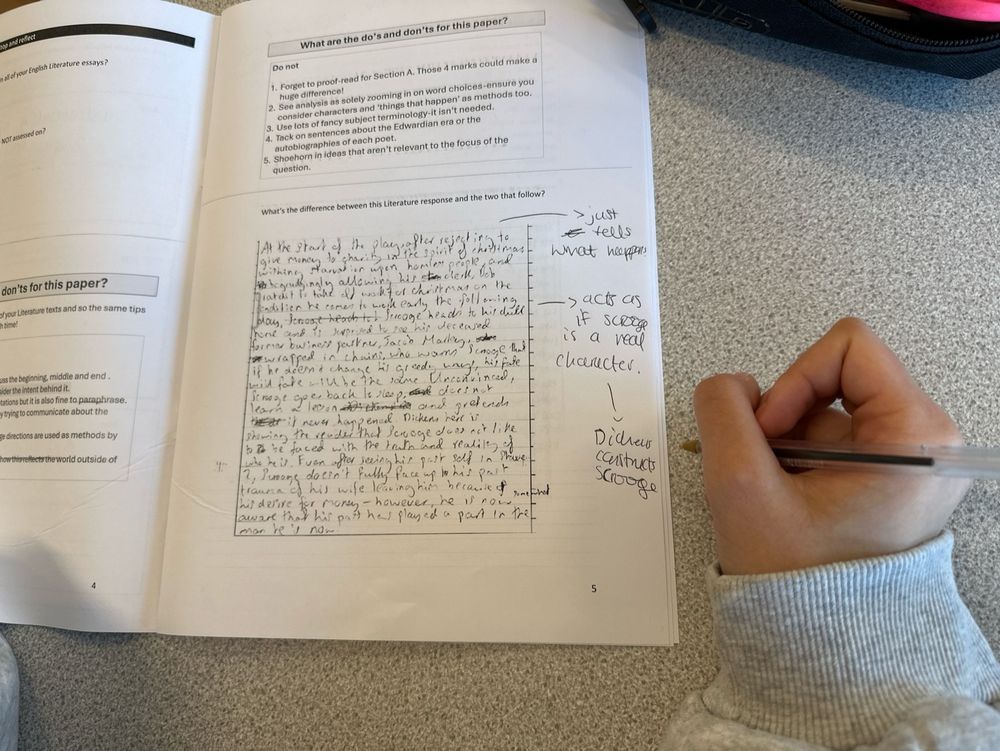 op and reflect
n all of your English Literature essays?
NOT assessed on?
don'ts for this paper?
of your Literature texts and so the same tips
h time!
uss the beginning, middle and end .
sider the intent behind it.
tations but it is also fine to paraphrase.
y trying to communicate about the
ge directions are used as methods by
how this reflects the world outside of
4
What are the do's and don'ts for this paper?
Do not
1. Forget to proof-read for Section A. Those 4 marks could make a
huge difference!
2. See analysis as solely zooming in on word choices-ensure you
consider characters and 'things that happen' as methods too.
3. Use lots of fancy subject terminology-it isn't needed.
4. Tack on sentences about the Edwardian era or the
autobiographies of each poet.
5. Shoehorn in ideas that aren't relevant to the focus of the
question.
What's the difference between this Literature response and the two that follow?
At the start of the play, after rejecting to
give money to charity in the spirit of christmas
wishing starvation upon homeless people, and
begrudgingly allowing his clerk, Bob
Cratchit to take off work for christmas on the
condition he comes to work early the following
day, Scrooge heads to his
home and is surprised to see his deceased
former business partner, Jacob Marley,
wrapped in chains, who warns Scrooge that
if he doesn't change his greedy ways, his fate
will be the same. Unconvinced,
Scrooge goes back to sleep, does not
learn a lesson and pretends
it never happened. Dickens here is
showing the reader that Scrooge does not like
to be faced with the truth and reality of
who he is. Even after seeing his past self in stave
2, Scrooge doesn't fully face up to his past
trauma of his wife leaving him because of
his desire for money - however, he is now somewhat
aware that his past has played a part in the
man he is now.
> just
tells
what happens
> acts as
if scrooge
is a real
character.
Dickens
constructs
scrooge
5